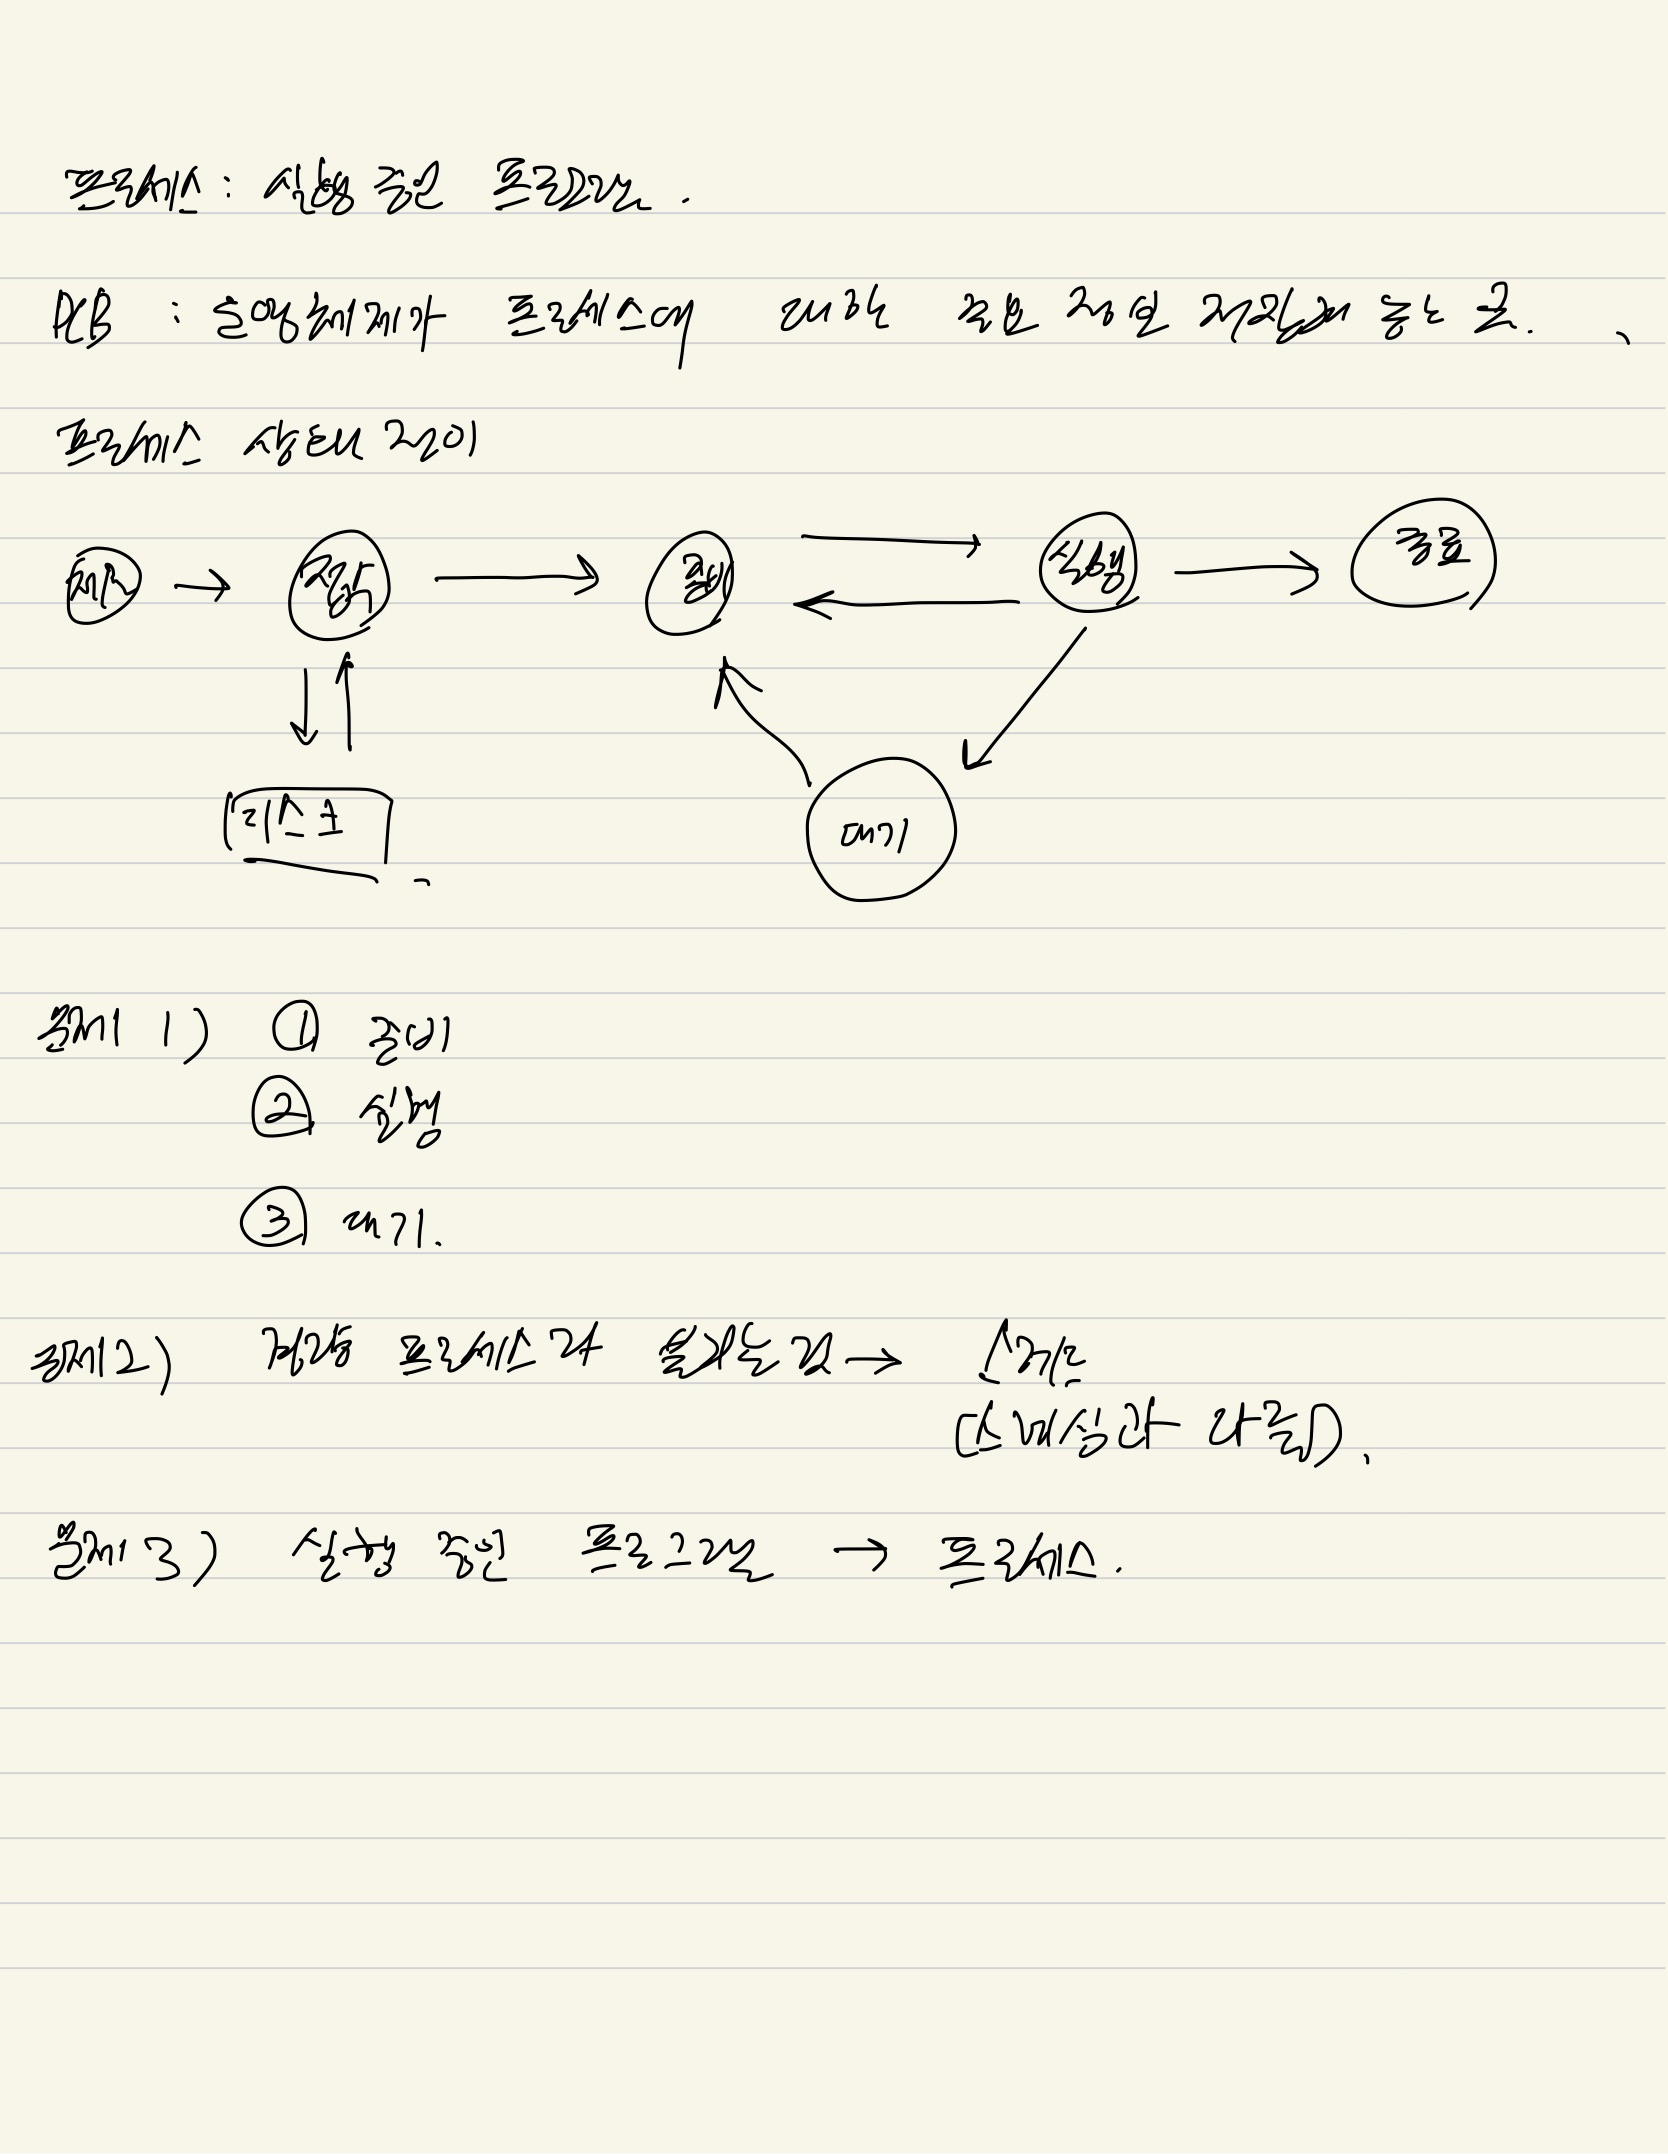 프로세스 : 실행 중인 프로그램.
PCB : 운영체제가 프로세스에 대한 중요 정보 저장해 놓는 곳.
프로세스 상태 전이
제출 접수 준비 실행 종료
디스크 대기
문제 1) ① 준비
② 실행
③ 대기.
문제2) 경량 프로세스라 불리는 것 → 스레드
(스케싱과 다름).
문제 3) 실행 중인 프로그램 → 프로세스.